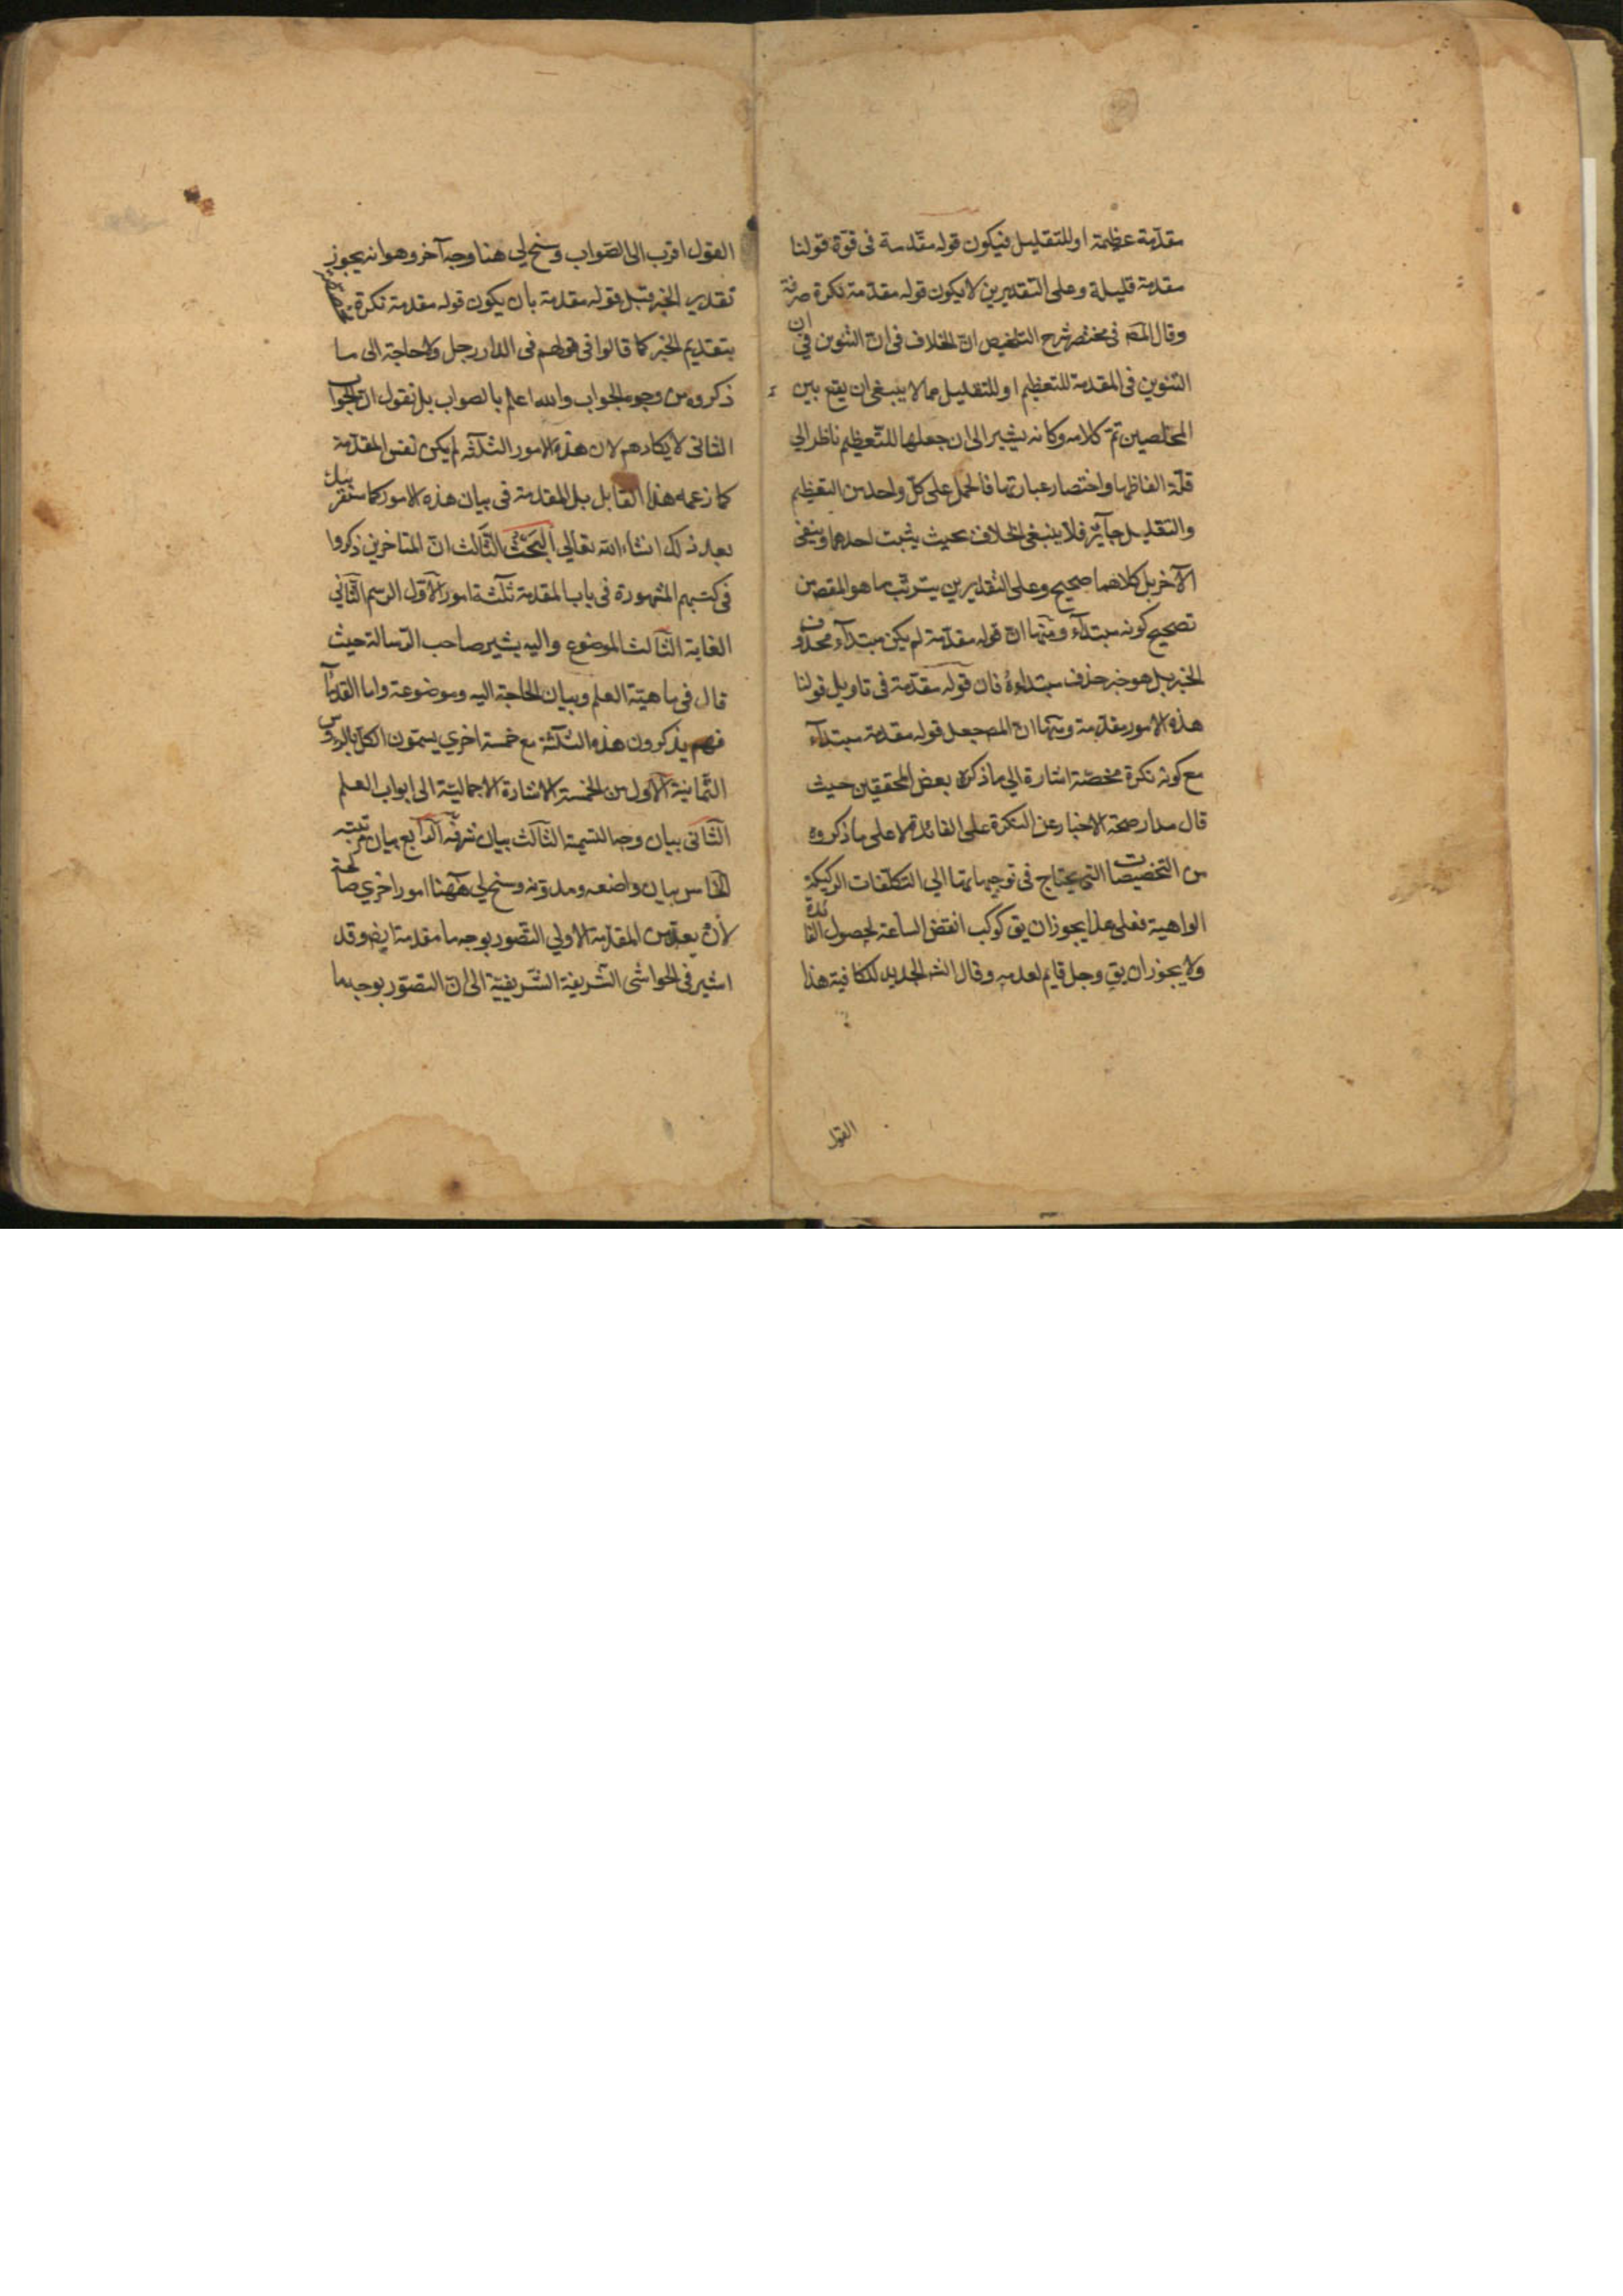 مقدّمة عظيمة او للتقليل فيكون قوله مقدّمة فى قوّة قولنا
مقدمة قليلة وعلى التقديرين لا يكون قوله مقدّمة نكرة صرفة
وقال المصَ فى مختصر شرح التلخيص انّ الخلاف فى انّ التنوين فى ان
التنوين فى المقدمة للتعظيم او للتقليل مما لا ينبغى ان يقع بين
المخلصين تمّ كلامه وكانه يشير الى ان جعلها للتّعظيم ناظر الي
قلّة الفاظها واختصار عبارتها فالحمل على كلّ واحد من التعظيم
والتقليل جآئز فلا ينبغى الخلاف بحيث يثبت احدهما وينفى
الآخر بل كلاهما صحيح وعلى التقديرين يترتّب ما هو المقص من
تصحيح كونه مبتدآء ومنها انّ قوله مقدّمة لم يكن مبتدآء محذوف
الخبر بل هو خبر حذف مبتداؤه فان قوله مقدّمة فى تاويل قولنا
هذه الامور مقدّمة ومنها انّ المصَ جعل قوله مقدمة مبتدآء
مع كونه نكرة مخصّة اشارة الي ما ذكره بعض المحققين حيث
قال مدار صحّة الاخبار عن النكرة على الفائدة لا على ما ذكروه
من التخصيصات التى يحتاج فى توجيهاتها الي التكلّفات الركيكة
الواهية فعلى هذا يجوز ان يق كوكب انقض الساعة لحصول الفائدة
ولا يجوز ان يق رجل قايم لعدمه وقال الشـ الجديد للكافية هذا
القول
القول اقرب الى الصّواب وسنح لي هنا وجه آخر وهو انه يجوز
تقدير الخبر قبل قوله مقدمة بان يكون قوله مقدمة نكرة
بتقديم الخبر كما قالوا فى قولهم فى الدار رجل ولا حاجة الى ما
ذكروه من وجوه الجواب والله اعلم بالصواب بل نقول انّ الجواب
الثانى لا يكاد يتم لان هذه الامور الثلثه لم يكن نفس المقدّمة
كما زعمه هذا القايل بل المقدمة فى بيان هذه الامور كما سنقر
بعد ذلك انشاء الله تعالي البحث الثّالث انّ المتاخرين ذكروا
فى كتبهم المشهورة فى باب المقدمة ثلثة امور الاوّل الرسم الثّاني
الغاية الثّالث الموضوع واليه يشير صاحب الرّسالة حيث
قال فى ماهيّة العلم وبيان الحاجة اليه وموضوعه واما القدمآء
فهم يذكرون هذه الثلثة مع خمسة اخري يسمّون الكلّ بالرؤس
الثّمانية الاوّل من الخمسة الاشارة الاجماليّة الى ابواب العلم
الثّانى بيان وجه التسمية الثّالث بيان شرفه الرّابع بيان مرتبته
الخامس بيان واضعه ومدوّنه وسنح لي هٓهنا امور اخري صالحة
لأن يعدّ من المقدّمة الاولي التصّور بوجه ما مقدمة ايضَ وقد
اشير فى الحواشى الشّريفة الشّريفيّة الى انّ التصّور بوجه ما